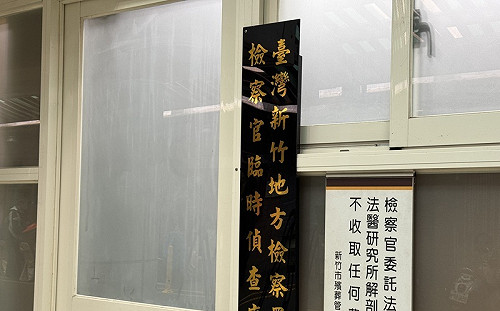 臺灣新竹地方檢察
檢察官臨時偵查
檢察官委託法
法醫研究所解剖
不收取任何
新竹市殯葬管